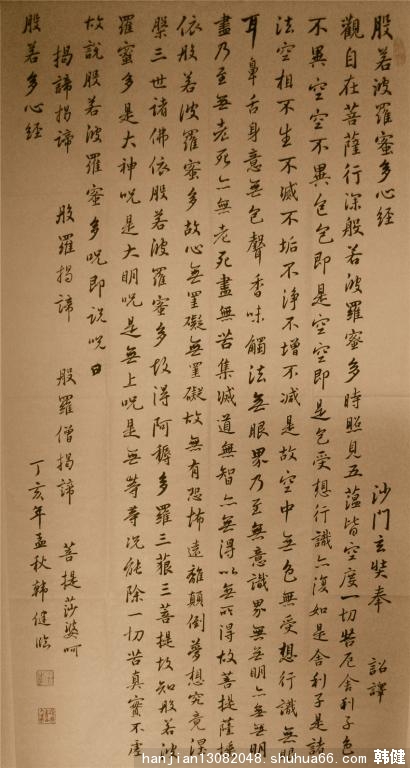 般若波羅蜜多心經 沙門玄奘奉 詔譯
觀自在菩薩行深般若波羅蜜多時照見五蘊皆空度一切苦厄舍利子色
不異空空不異色色即是空空即是色受想行識亦復如是舍利子是諸
法空相不生不滅不垢不淨不增不減是故空中無色無受想行識無眼
耳鼻舌身意無色聲香味觸法無眼界乃至無意識界無無明亦無無明
盡乃至無老死亦無老死盡無苦集滅道無智亦無得以無所得故菩提薩埵
依般若波羅蜜多故心無罣礙無罣礙故無有恐怖遠離顛倒夢想究竟涅
槃三世諸佛依般若波羅蜜多故得阿耨多羅三藐三菩提故知般若波
羅蜜多是大神咒是大明咒是無上咒是無等等咒能除一切苦真實不虛
故說般若波羅蜜多咒即說咒曰
揭諦揭諦 般羅揭諦 般羅僧揭諦 菩提莎婆呵
般若多心經 丁亥年孟秋韓健臨
hanjian13082048.shuhua66.com 韩健